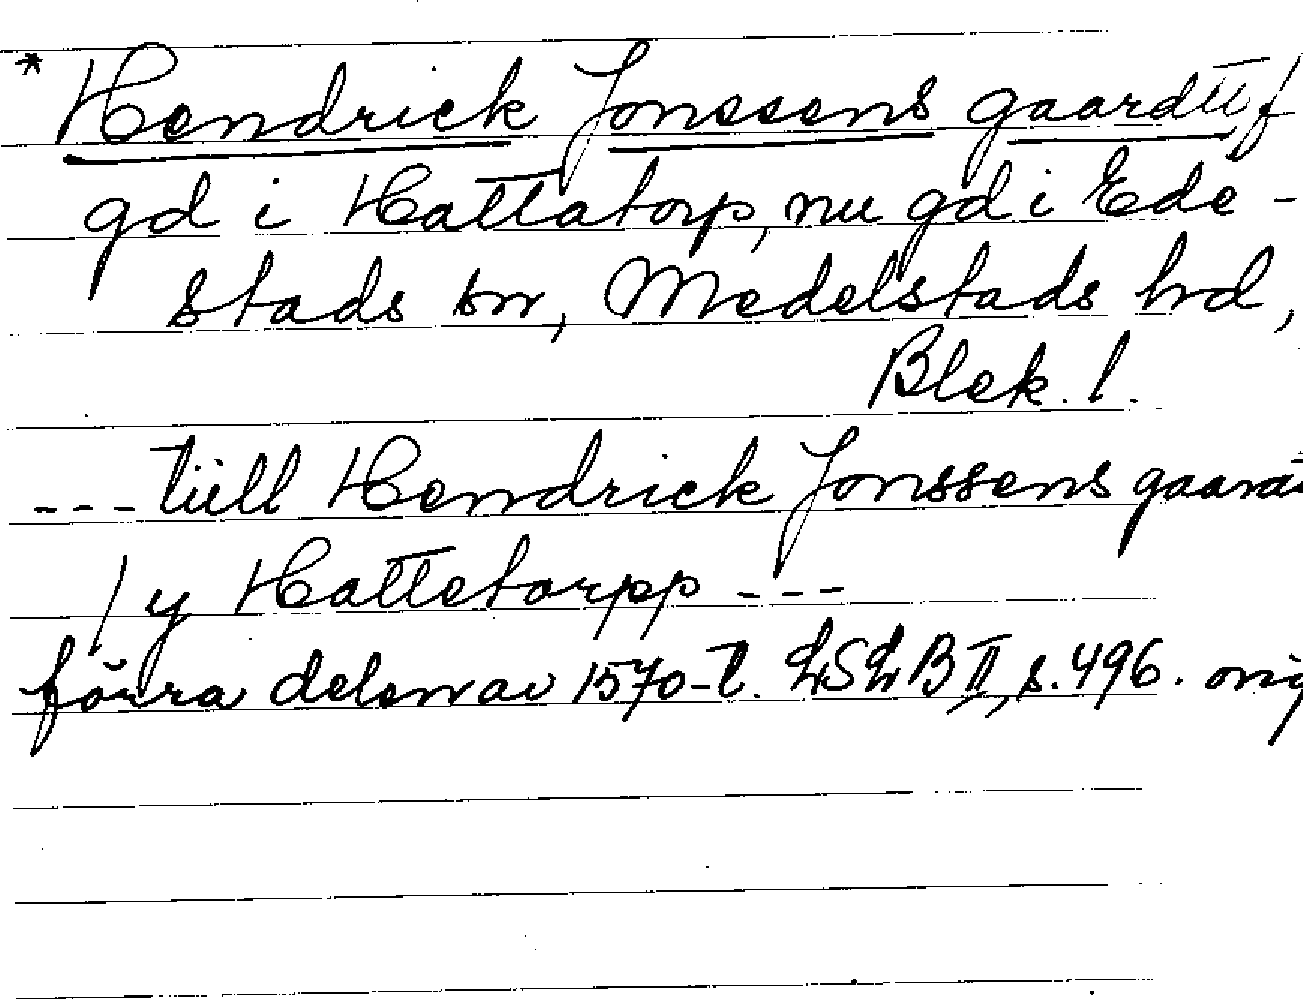 * Hendrick Jonssens gaardtt f
gd i Hattatorp, nu gd i Ede-
stads sn, Medelstads hrd,
Blek. l.
--- tüll Hendrick Jonssens gaardt
/ y Hattetorpp ---
förra delen av 1570-t. LSLB II, s. 496. orig